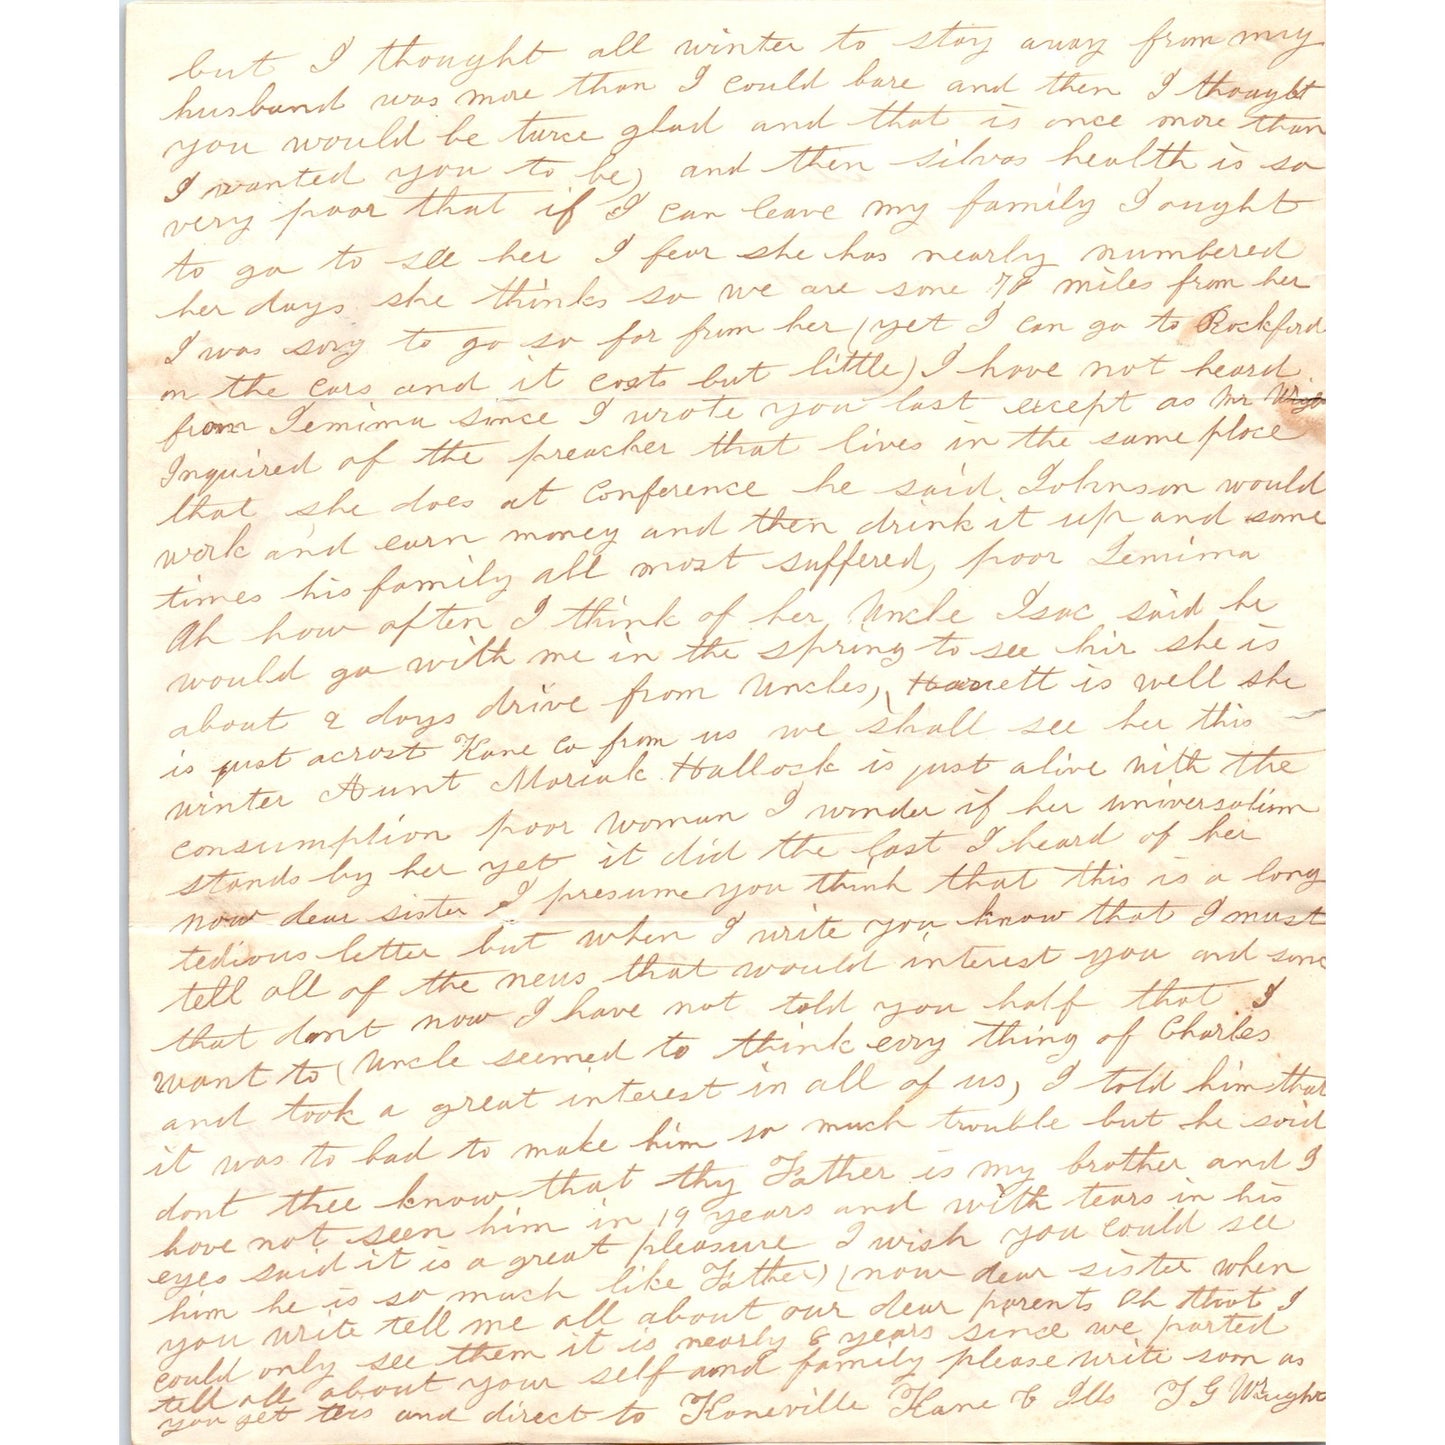 but I thought all winter to stay away from my
husband was more than I could bare and then I thought
you would be turce glad and that is once more than
I wanted you to be) and then silvas health is so
very poor that if I can leave my family I ought
to go to see her I fear she has nearly numbered
her days she thinks so we are some 78 miles from her
I was sory to go so far from her (yet I can go to Rockford
on the cars and it costs but little) I have not heard
from Jemima since I wrote you last except as Mr Wrigh
Inquired of the preacher that lives in the same place
that she does at Conference he said Johnson would
work and earn money and then drink it up and some
times his family all most suffered, poor Jemima
Ah how often I think of her Uncle Isac said he
would go with me in the spring to see hir she is
about 2 days drive from Uncles, Harriett is well she
is just acrost Kane Co from us we shall see her this
winter Aunt Moriah Hallock is just alive with the
consumption poor woman I wonder if her universalism
stands by her yet it did the last I heard of her
now dear sister I presume you think that this is a long
tedious letter but when I write you know that I must
tell all of the news that would interest you and some
that dont now I have not told you half that I
want to (Uncle seemed to think evry thing of Charles
and took a great interest in all of us) I told him that
it was to bad to make him so much trouble but he said
dont thee know that thy Father is my brother and I
have not seen him in 19 years and with tears in his
eyes said it is a great pleasure I wish you could see
him he is so much like Father) (now dear sister when
you write tell me all about our dear parents Oh that I
could only see them it is nearly 6 years since we parted
tell all about your self and family please write soon as
you get this and direct to Kaneville Kane C Ills J G Wright